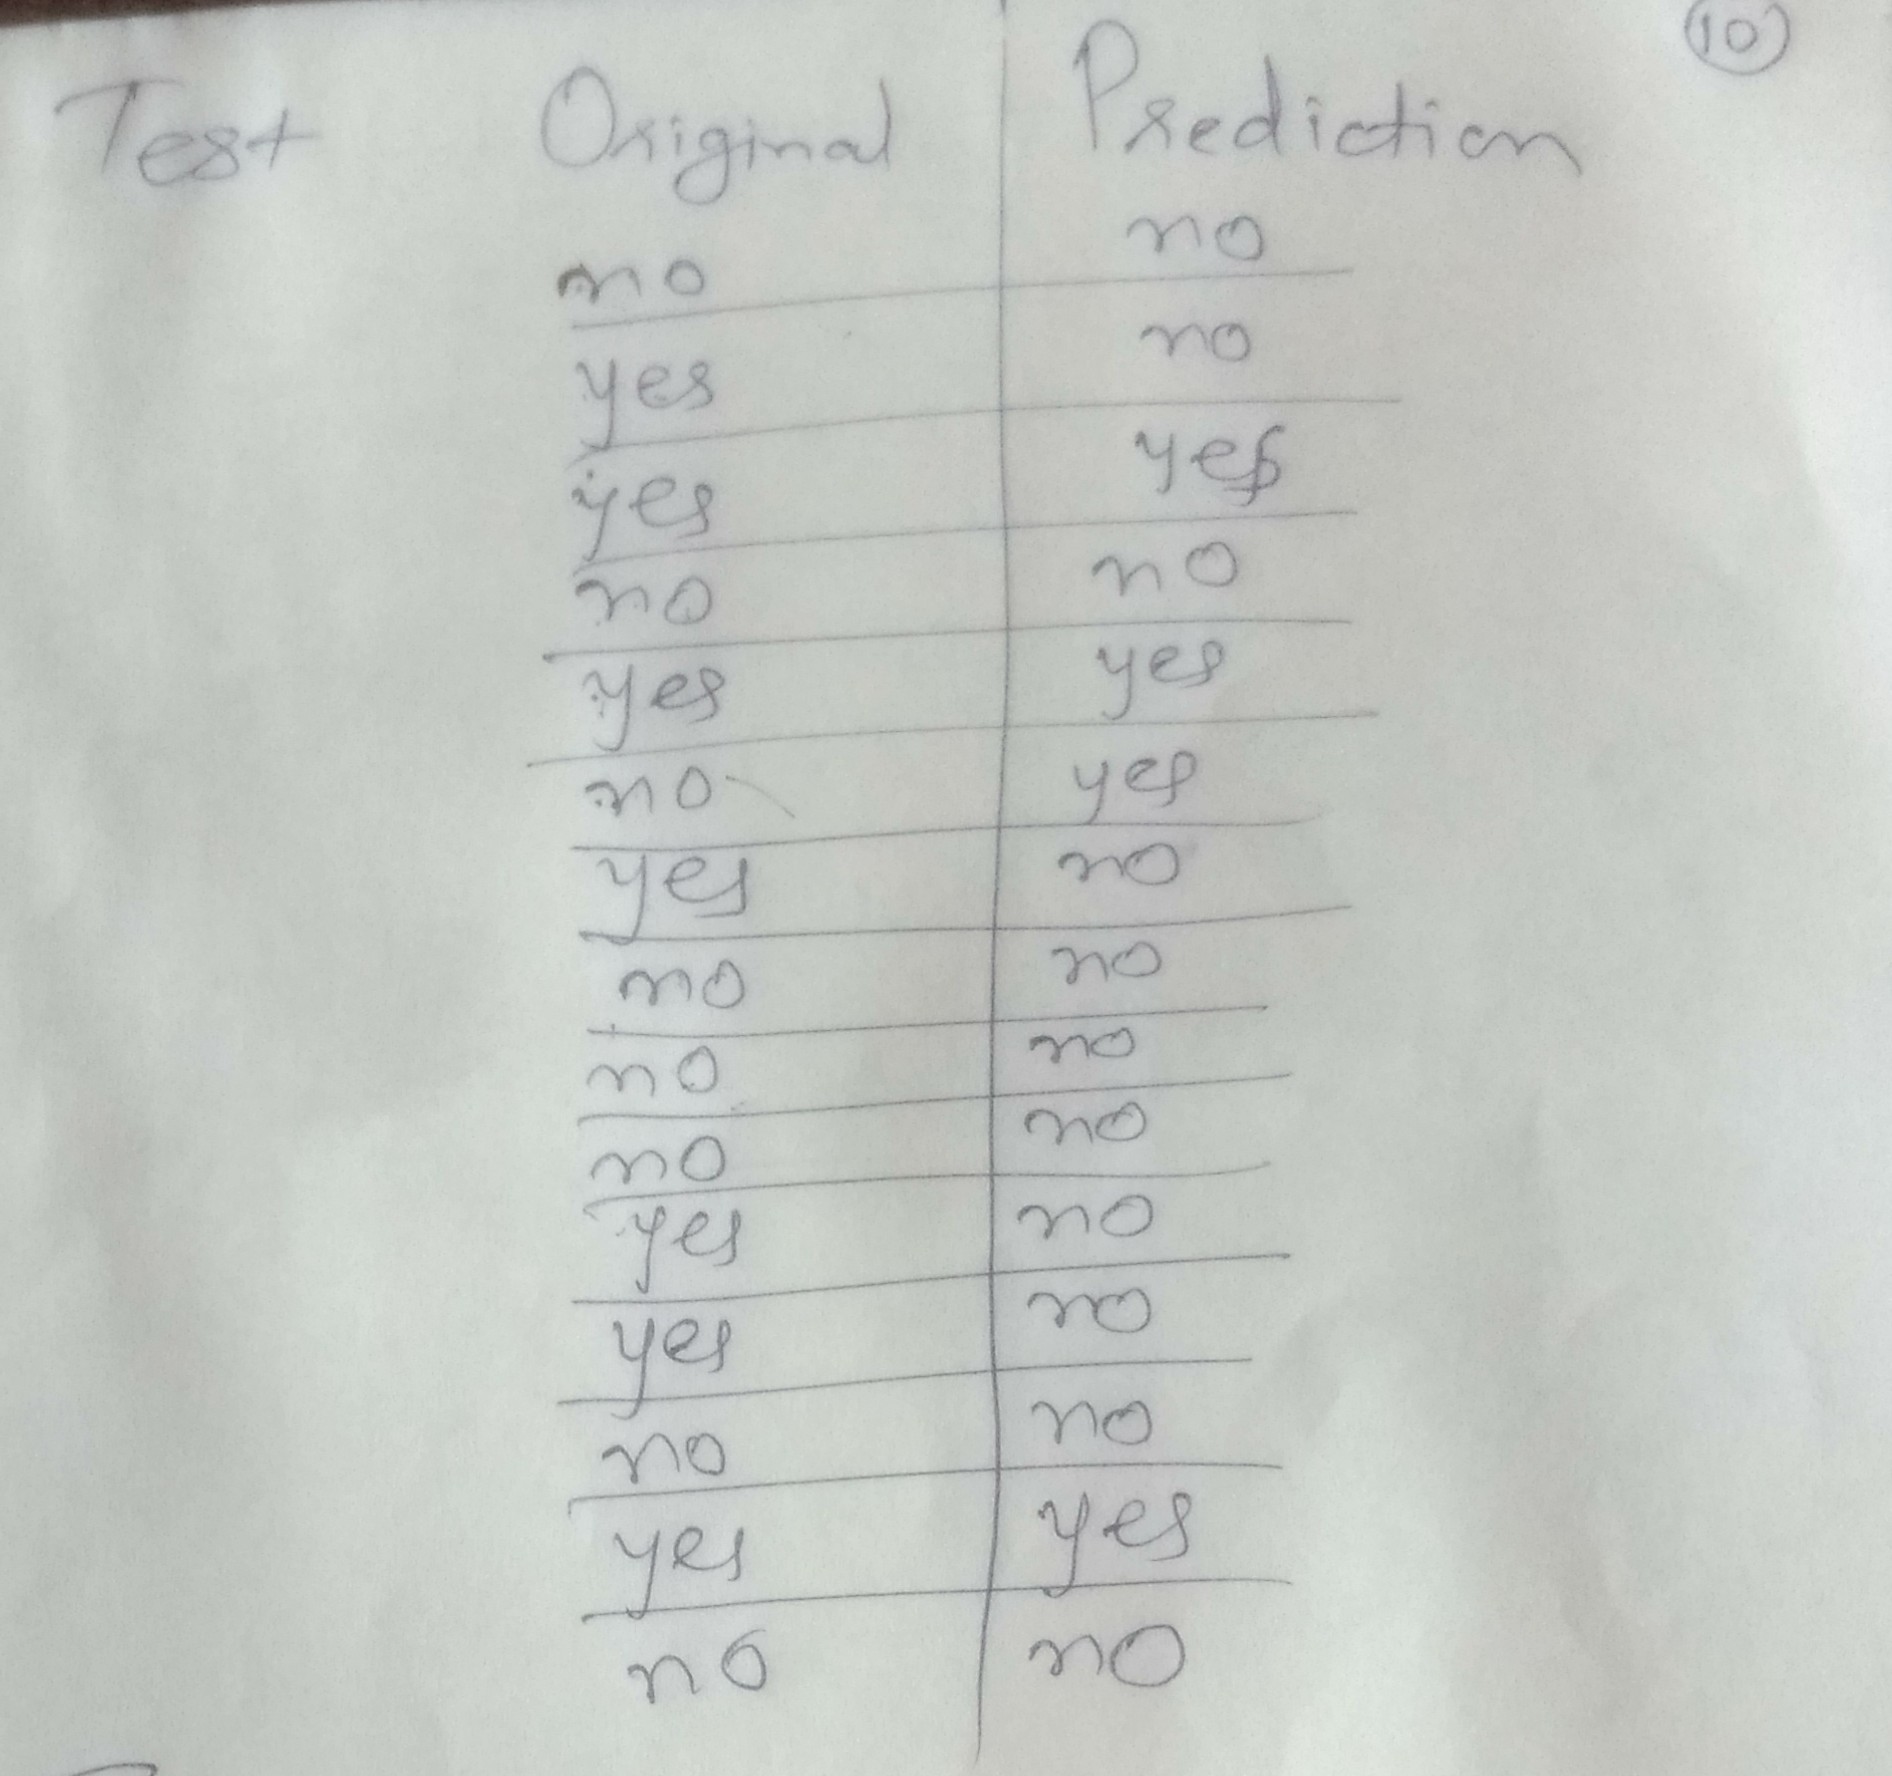 10
Test Original Prediction
no no
yes no
yes yes
no no
yes yes
no yes
yes no
no no
no no
no no
yes no
yes no
no no
yes yes
no no